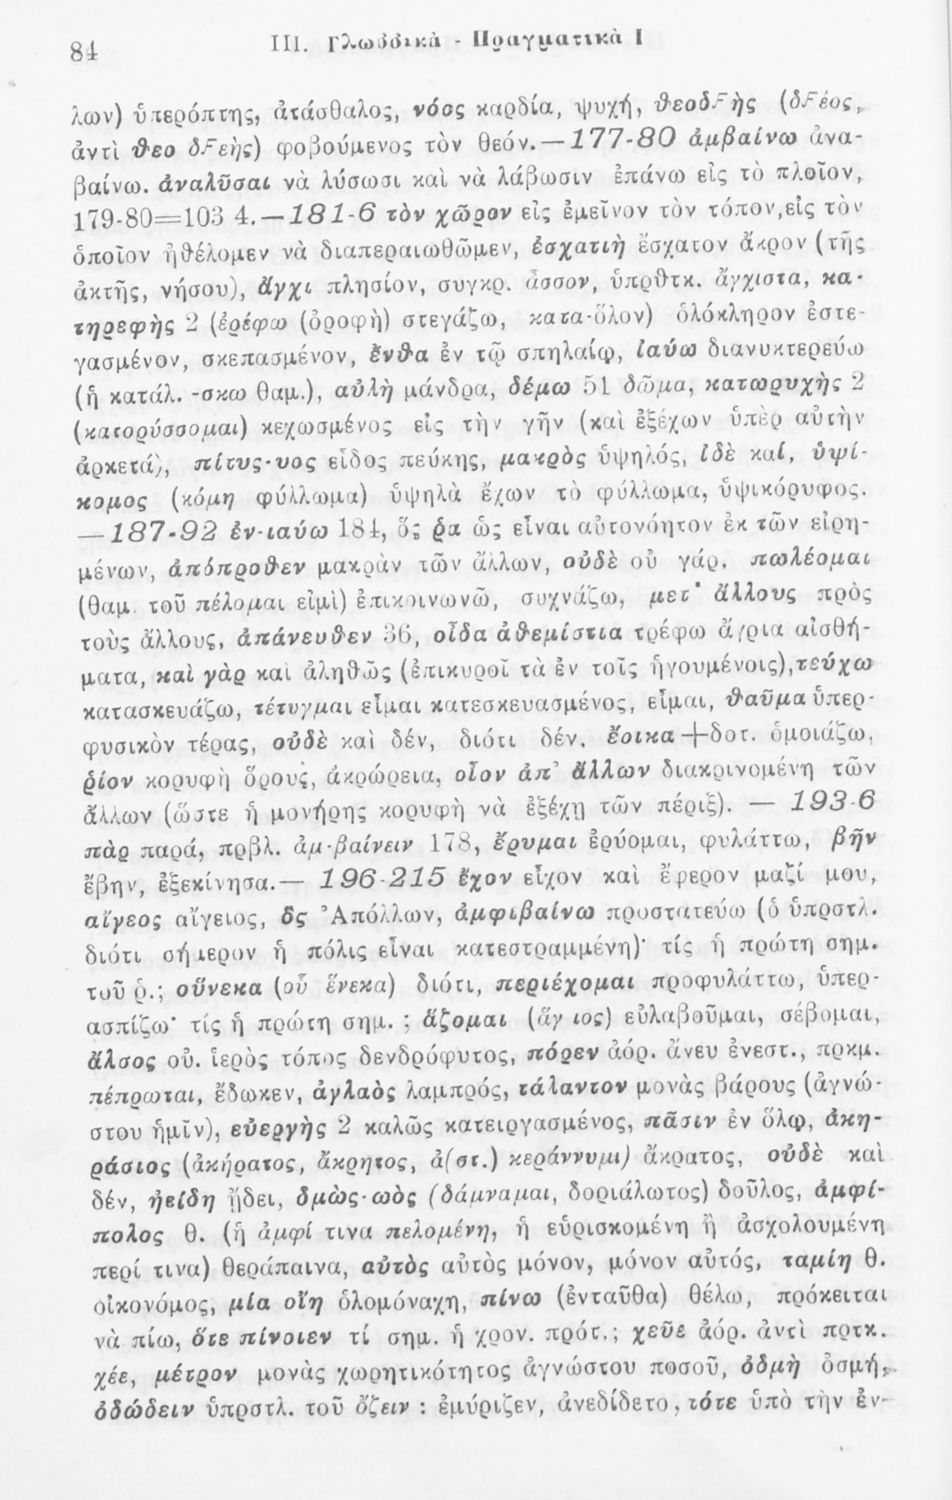 84
III. Γλωσσικὰ - Πραγματικὰ I
λων) ὑπερόπτης, ἀτάσθαλος, νόος καρδία, ψυχή, θεοδϜὴς (δϜέος,
ἀντὶ θεο δϜεὴς) φοβούμενος τὸν θεόν.—177-80 ἀμβαίνω ἀνα-
βαίνω. ἀναλῦσαι νὰ λύσωσι καὶ νὰ λάβωσιν ἐπάνω εἰς τὸ πλοῖον,
179-80=103 4.—181-6 τὸν χῶρον εἰς ἐμεῖνον τὸν τόπον,εἰς τὸν
ὁποῖον ἠθέλομεν νὰ διαπεραιωθῶμεν, ἐσχατιὴ ἔσχατον ἄκρον (τῆς
ἀκτῆς, νήσου), ἄγχι πλησίον, συγκρ. ἆσσον, ὑπρθτκ. ἄγχιστα, κα-
τηρεφὴς 2 (ἐρέφω (ὀροφὴ) στεγάζω, κατα-ὅλον) ὁλόκληρον ἐστε-
γασμένον, σκεπασμένον, ἔνθα ἐν τῷ σπηλαίῳ, ἰαύω διανυκτερεύω
(ἡ κατάλ. -σκω θαμ.), αὐλὴ μάνδρα, δέμω 51 δῶμα, κατωρυχὴς 2
(κατορύσσομαι) κεχωσμένος εἰς τὴν γῆν (καὶ ἐξέχων ὑπὲρ αὐτὴν
ἀρκετά), πίτυς-υος εἶδος πεύκης, μακρὸς ὑψηλός, ἰδὲ καί, ὑψί-
κομος (κόμη φύλλωμα) ὑψηλὰ ἔχων τὸ φύλλωμα, ὑψικόρυφος.
— 187-92 ἐν-ιαύω 184, ὅς ῥα ὡς εἶναι αὐτονόητον ἐκ τῶν εἰρη-
μένων, ἀπόπροθεν μακρὰν τῶν ἄλλων, οὐδὲ οὐ γάρ. πωλέομαι
(θαμ. τοῦ πέλομαι εἰμὶ) ἐπικοινωνῶ, συχνάζω, μετ' ἄλλους πρὸς
τοὺς ἄλλους, ἀπάνευθεν 36, οἶδα ἀθεμίστια τρέφω ἄγρια αἰσθή-
ματα, καὶ γὰρ καὶ ἀληθῶς (ἐπικυροῖ τὰ ἐν τοῖς ἡγουμένοις),τεύχω
κατασκευάζω, τέτυγμαι εἶμαι κατεσκευασμένος, εἶμαι, θαῦμα ὑπερ-
φυσικὸν τέρας, οὐδὲ καὶ δέν, διότι δέν. ἔοικα+δοτ. ὁμοιάζω,
ῥίον κορυφὴ ὄρους, ἀκρώρεια, οἷον ἀπ' ἄλλων διακρινομένη τῶν
ἄλλων (ὥστε ἡ μονήρης κορυφὴ νὰ ἐξέχῃ τῶν πέριξ). — 193-6
πὰρ παρά, πρβλ. ἀμ-βαίνειν 178, ἔρυμαι ἐρύομαι, φυλάττω, βῆν
ἔβην, ἐξεκίνησα.— 196-215 ἔχον εἶχον καὶ ἔφερον μαζί μου,
αἴγεος αἴγειος, ὃς Ἀπόλλων, ἀμφιβαίνω προστατεύω (ὁ ὑπρστλ.
διότι σήμερον ἡ πόλις εἶναι κατεστραμμένη)· τίς ἡ πρώτη σημ.
τοῦ ῥ.; οὕνεκα (οὗ ἕνεκα) διότι, περιέχομαι προφυλάττω, ὑπερ-
ασπίζω· τίς ἡ πρώτη σημ. ; ἅζομαι (ἅγ ιος) εὐλαβοῦμαι, σέβομαι,
ἄλσος οὐ. ἱερὸς τόπος δενδρόφυτος, πόρεν ἀόρ. ἄνευ ἐνεστ., πρκμ.
πέπρωται, ἔδωκεν, ἀγλαὸς λαμπρός, τάλαντον μονὰς βάρους (ἀγνώ-
στου ἡμῖν), εὐεργὴς 2 καλῶς κατειργασμένος, πᾶσιν ἐν ὅλῳ, ἀκη-
ράσιος (ἀκήρατος, ἄκρητος, ἀ(στ.) κεράννυμι) ἄκρατος, οὐδὲ καὶ
δέν, ἠείδη ᾔδει, δμὼς-ωὸς (δάμναμαι, δοριάλωτος) δοῦλος, ἀμφί-
πολος θ. (ἡ ἀμφί τινα πελομένη, ἡ εὑρισκομένη ἢ ἀσχολουμένη
περί τινα) θεράπαινα, αὐτὸς αὐτὸς μόνον, μόνον αὐτός, ταμίη θ.
οἰκονόμος, μία οἴη ὁλομόναχη, πίνω (ἐνταῦθα) θέλω, πρόκειται
νὰ πίω, ὅτε πίνοιεν τί σημ. ἡ χρον. πρότ.; χεῦε ἀόρ. ἀντὶ πρτκ.
χέε, μέτρον μονὰς χωρητικότητος ἀγνώστου ποσοῦ, ὀδμὴ ὀσμή,
ὀδώδειν ὑπρστλ. τοῦ ὄζειν : ἐμύριζεν, ἀνεδίδετο, τότε ὑπὸ τὴν ἐν-